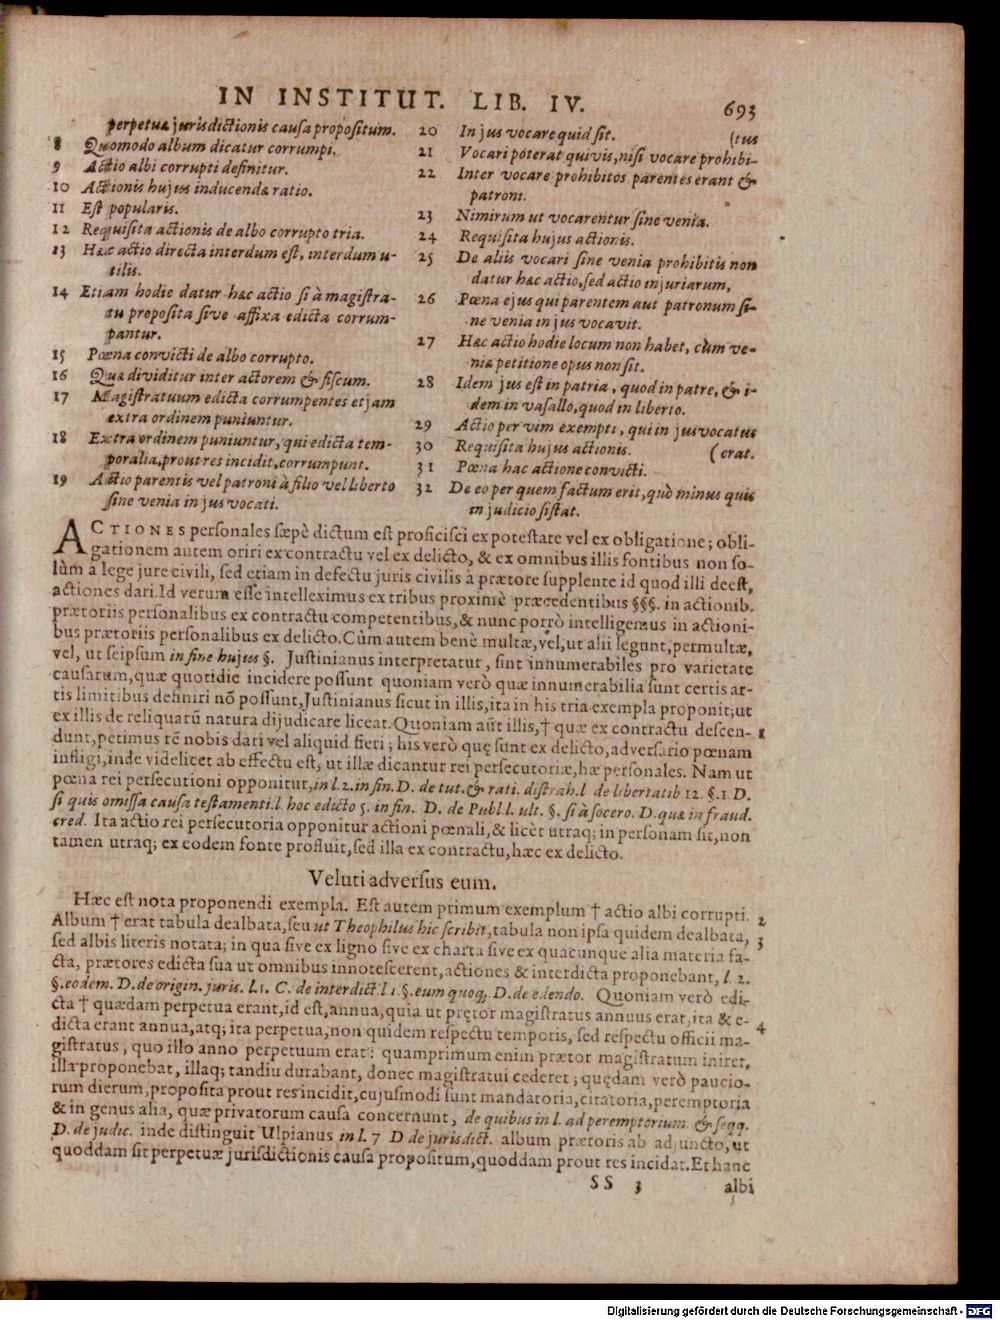 IN INSTITUT. LIB. IV.
693
perpetuæ jurisdictionis causa propositum.
8 Quomodo album dicatur corrumpi.
9 Actio albi corrupti definitur.
10 Actionis hujus inducendæ ratio.
11 Est popularis.
12 Requisita actionis de albo corrupto tria.
13 Hæc actio directa interdum est, interdum u-
tilis.
14 Etiam hodie datur hæc actio si à magistra-
tu proposita sive affixa edicta corrum-
pantur.
15 Pœna convicti de albo corrupto.
16 Quæ dividitur inter actorem & fiscum.
17 Magistratuum edicta corrumpentes etjam
extra ordinem puniuntur.
18 Extra ordinem puniuntur, qui edicta tem-
poralia, prout res incidit, corrumpunt.
19 Actio parentis vel patroni à filio vel liberto
sine venia in jus vocati.
20 In jus vocare quid sit.
21 Vocari poterat quivis, nisi vocare prohibi-(tus
22 Inter vocare prohibitos parentes erant &
patroni.
23 Nimirum ut vocarentur sine venia.
24 Requisita hujus actionis.
25 De aliis vocari sine venia prohibitis non
datur hæc actio, sed actio injuriarum,
26 Pœna ejus qui parentem aut patronum si-
ne venia in jus vocavit.
27 Hæc actio hodie locum non habet, cùm ve-
niæ petitione opus non sit.
28 Idem jus est in patria, quod in patre, & i-
dem in vasallo, quod in liberto.
29 Actio per vim exempti, qui in jus vocatus
30 Requisita hujus actionis. (erat.
31 Pœna hac actione convicti.
32 De eo per quem factum erit, quò minus quis
in judicio sistat.
ACTIONES personales sæpè dictum est proficisci ex potestate vel ex obligatione; obli-
gationem autem oriri ex contractu vel ex delicto, & ex omnibus illis fontibus non so-
lùm à lege jure civili, sed etiam in defectu juris civilis à prætore supplente id quod illi deest,
actiones dari. Id verum esse intelleximus ex tribus proximè præcedentibus §§§. in actionib.
prætoriis personalibus ex contractu competentibus, & nunc porrò intelligemus in actioni-
bus prætoriis personalibus ex delicto. Cùm autem benè multæ, vel, ut alii legunt, permultæ,
vel, ut seipsum in fine hujus §. Justinianus interpretatur, sint innumerabiles pro varietate
causarum, quæ quotidie incidere possunt quoniam verò quæ innumerabilia sunt certis ar-
tis limitibus definiri nō possunt, Justinianus sicut in illis, ita in his tria exempla proponit; ut
ex illis de reliquarū natura dijudicare liceat. Quoniam aūt illis, † quæ ex contractu descen- 1
dunt, petimus rē nobis dari vel aliquid fieri; his verò quę sunt ex delicto, adversario pœnam
infligi, inde videlicet ab effectu est, ut illæ dicantur rei persecutoriæ, hæ personales. Nam ut
pœna rei persecutioni opponitur, in l. 2. in fin. D. de tut. & rati. distrah. l de libertatib 12. §. 1. D.
si quis omissa causa testamenti. l. hoc edicto 5. in fin. D. de Publ. l. ult. §. si à socero. D. quæ in fraud.
cred. Ita actio rei persecutoria opponitur actioni pœnali, & licèt utraq; in personam sit, non
tamen utraq; ex eodem fonte profluit, sed illa ex contractu, hæc ex delicto.
Veluti adversus eum.
Hæc est nota proponendi exempla. Est autem primum exemplum † actio albi corrupti. 2
Album † erat tabula dealbata, seu ut Theophilus hic scribit, tabula non ipsa quidem dealbata, 3
sed albis literis notata; in qua sive ex ligno sive ex charta sive ex quacunque alia materia fa-
cta, prætores edicta sua ut omnibus innotescerent, actiones & interdicta proponebant, l. 2.
§. eodem. D. de origin. juris. l. 1. C. de interdict. l 1. §. eum quoq; D. de edendo. Quoniam verò edi-
cta † quædam perpetua erant, id est, annua, quia ut prętor magistratus annuus erat, ita & e- 4
dicta erant annua, atq; ita perpetua, non quidem respectu temporis, sed respectu officii ma-
gistratus, quo illo anno perpetuum erat: quamprimum enim prætor magistratum iniret,
illa proponebat, illaq; tandiu durabant, donec magistratui cederet; quędam verò paucio-
rum dierum, proposita prout res incidit, cujusmodi sunt mandatoria, citatoria, peremptoria
& in genus alia, quæ privatorum causa concernunt, de quibus in l. ad peremptorium. & seqq.
D. de judic. inde distinguit Ulpianus in l. 7 D de jurisdict. album prætoris ab adjuncto, ut
quoddam sit perpetuæ jurisdictionis causa propositum, quoddam prout res incidat. Et hanc
SS 3
albi
Digitalisierung gefördert durch die Deutsche Forschungsgemeinschaft - DFG